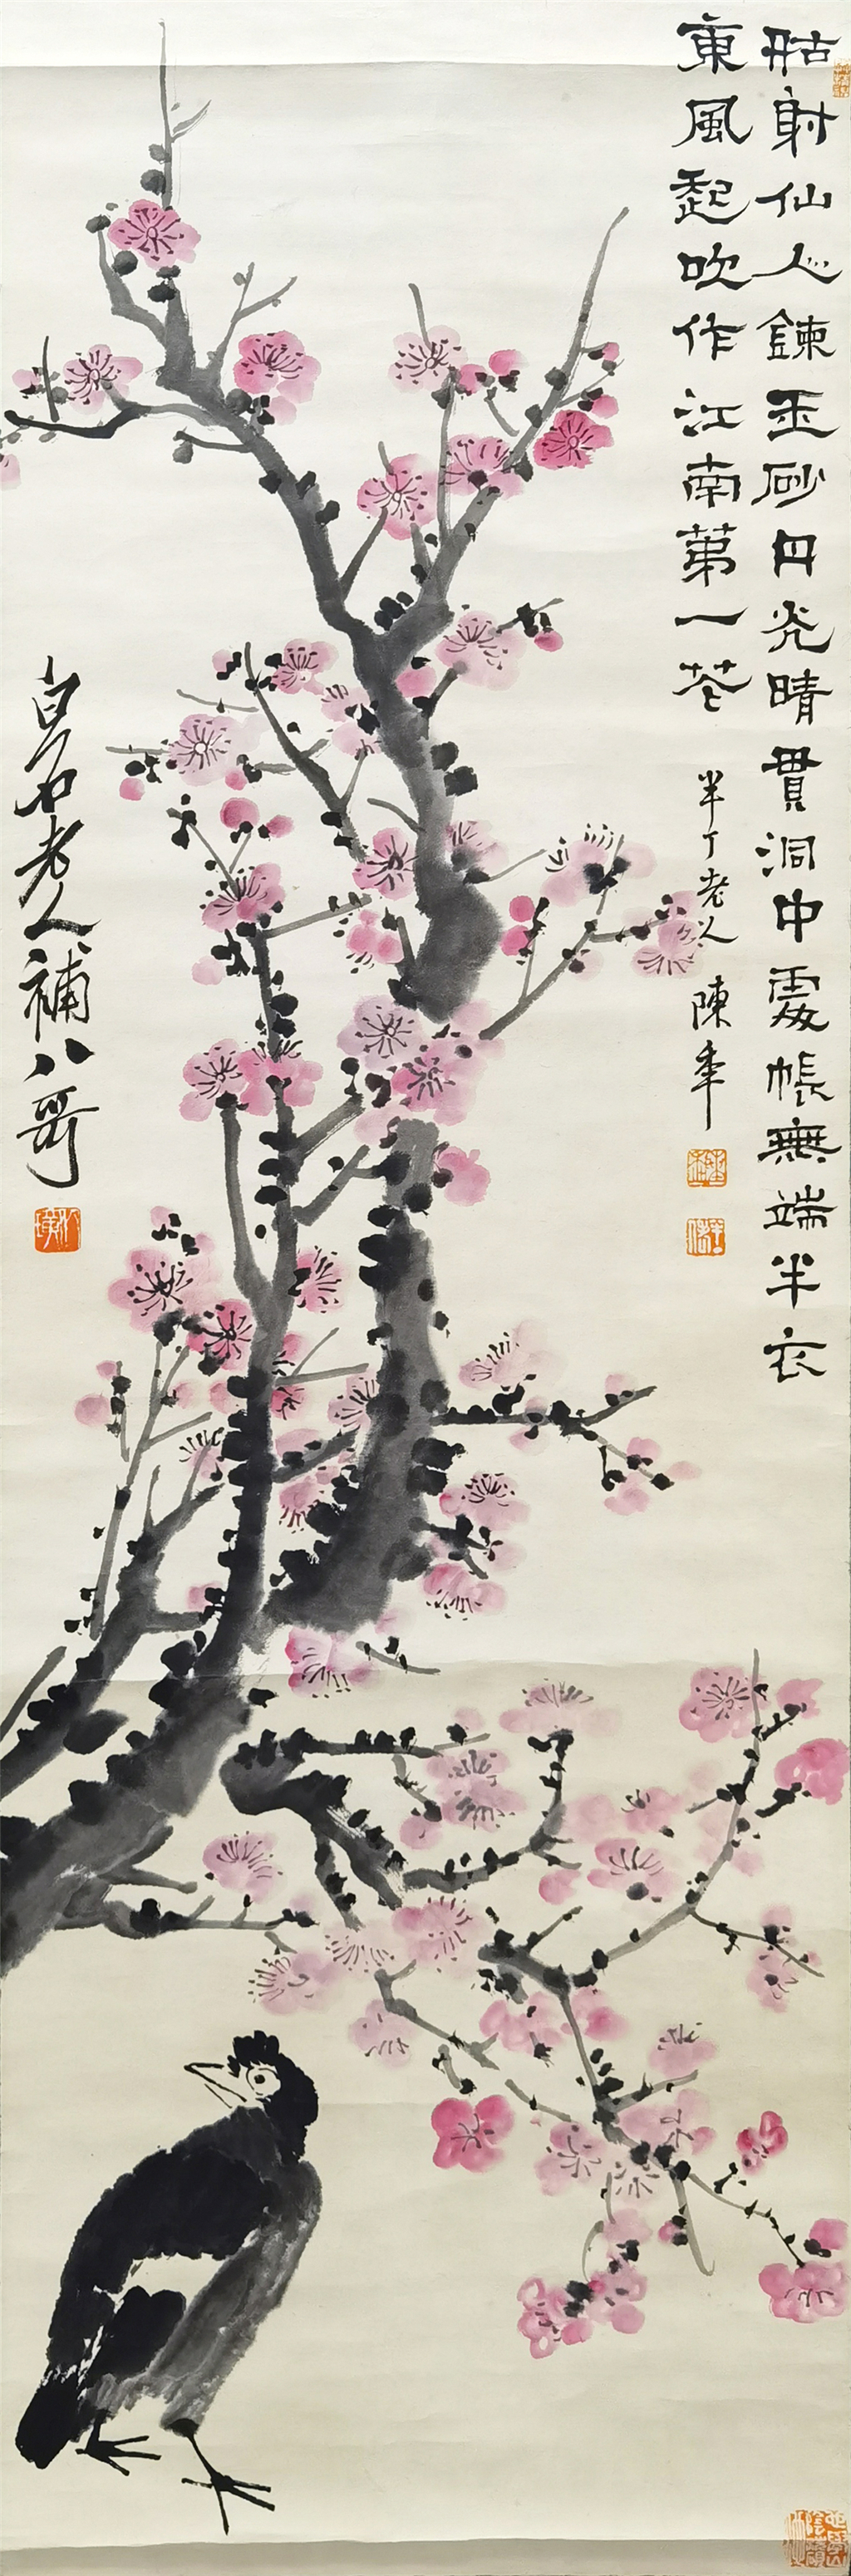 姑射仙人鍊玉砂丹光晴貫洞中霞帳無端半衣
東風起吹作江南第一花
半丁老人 陳年
白石老人補八哥